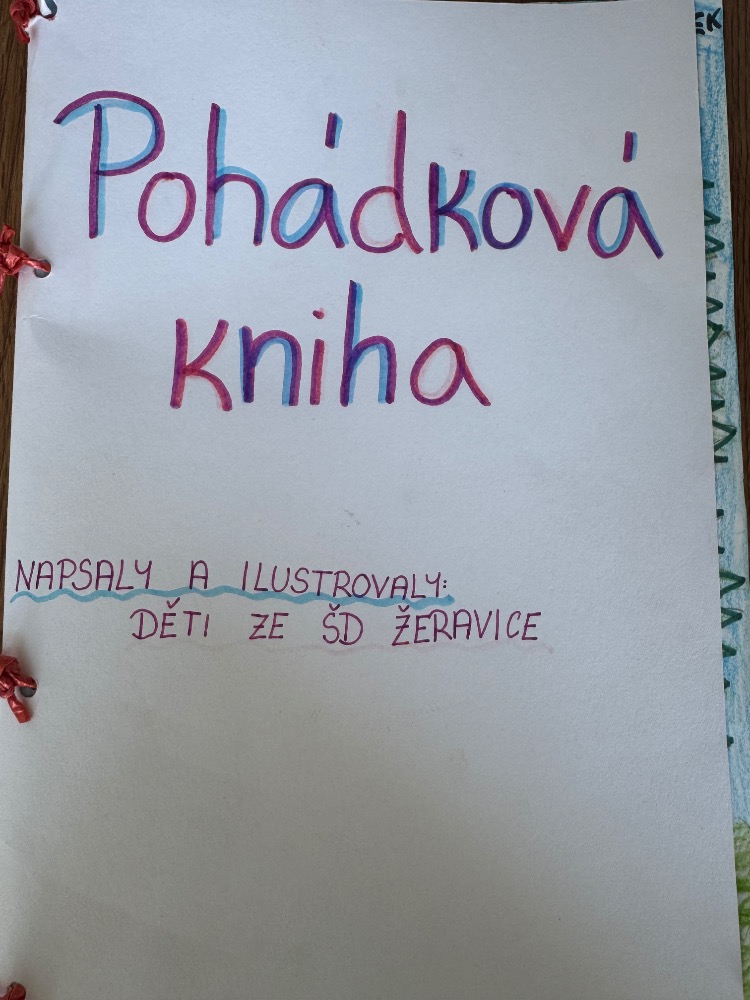 Pohádková
kniha
NAPSALY A ILUSTROVALY:
DĚTI ZE ŠD ŽERAVICE